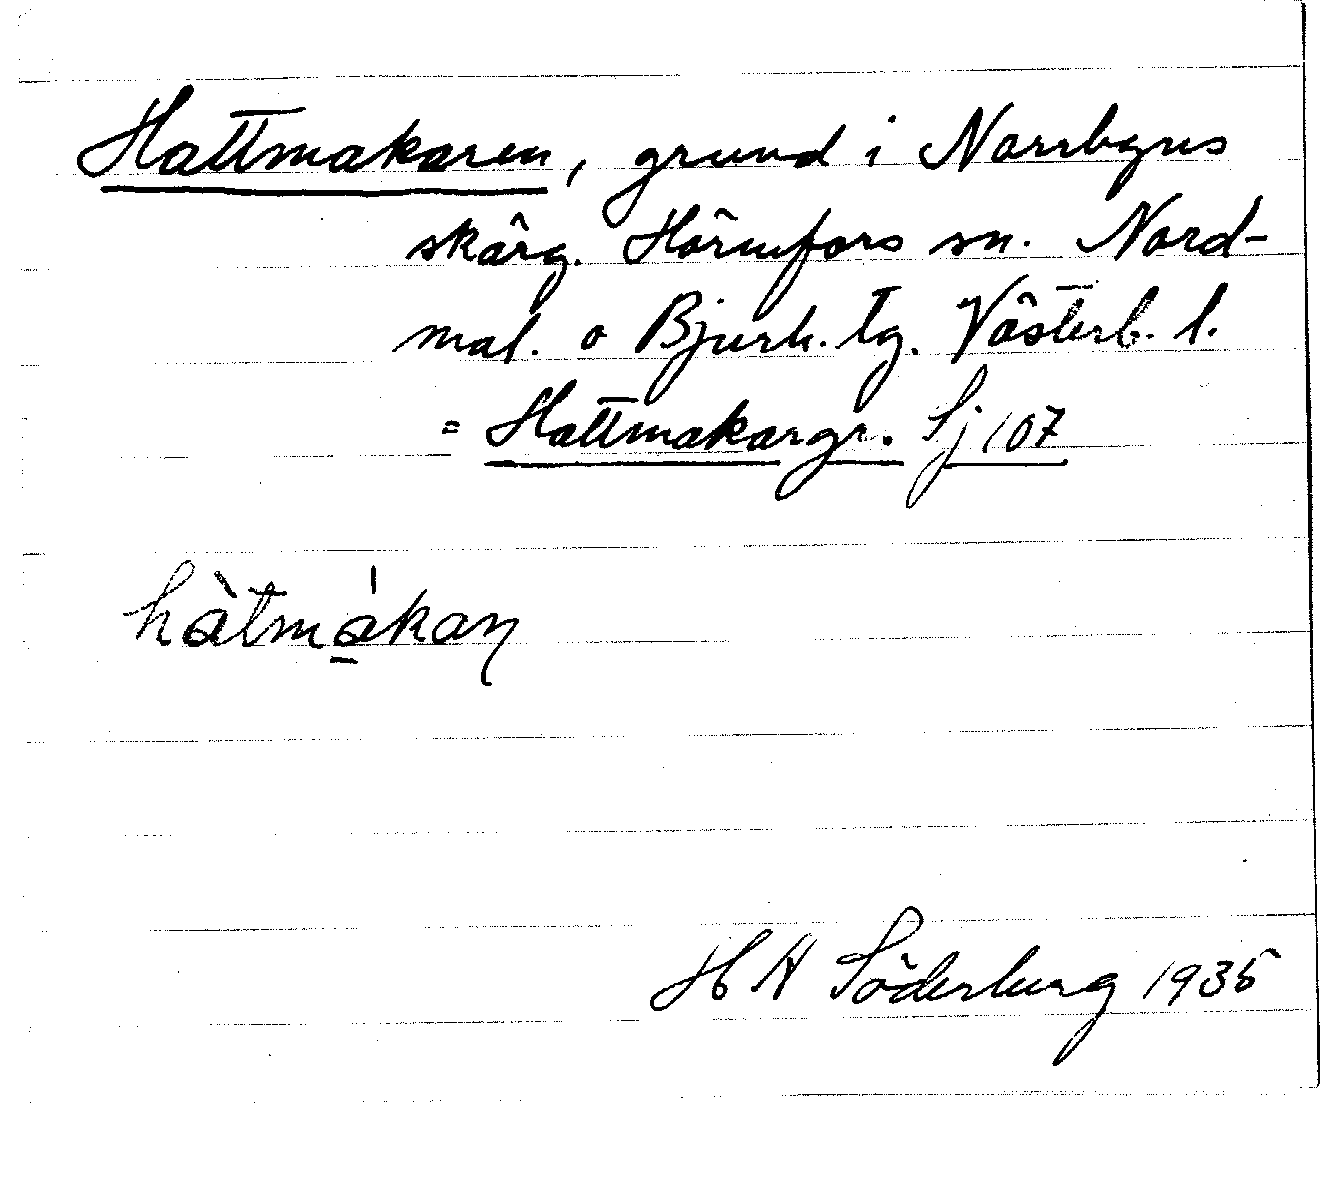 Hattmakaren, grund i Norrbyns
skärg. Hörnefors sn. Nord-
mal. o Bjurh. tg. Västerb. l.
= Hattmakargr. Sj 107
hàtmákaṇ
H A Söderberg 1935